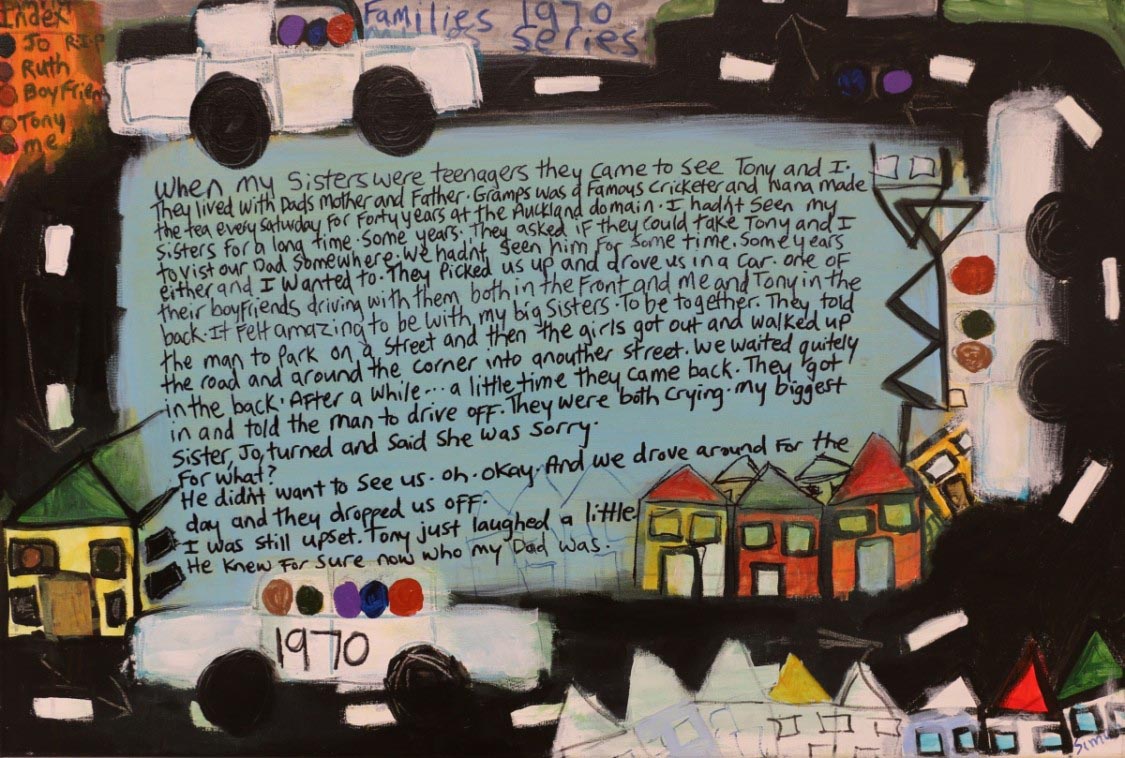 Index
Jo RIP
Ruth
BoyFriend
Tony
me
Families 1970
Series
When my Sisters were teenagers they came to see Tony and I.
They lived with Dads Mother and Father. Gramps was a Famous cricketer and Nana made
the tea every saturday for Forty years at the Auckland domain. I hadnt seen my
sisters for a long time. Some years. They asked if they could take Tony and I
to vist our Dad somewhere. We hadnt seen him for some time. Some years
either and I wanted to. They picked us up and drove us in a car. one of
their boyfriends driving with them both in the front and me and Tony in the
back. It felt amazing to be with my big sisters. To be together. They told
the man to park on a street and then the girls got out and walked up
the road and around the corner into anouther street. We waited quitely
in the back. After a while... a little time they came back. They got
in and told the man to drive off. They were both crying. my biggest
Sister, Jo, turned and said she was sorry.
For what?
He didnt want to see us. oh. okay. And we drove around for the
day and they dropped us off.
I was still upset. Tony just laughed a little
He knew for sure now who my Dad was.
1970